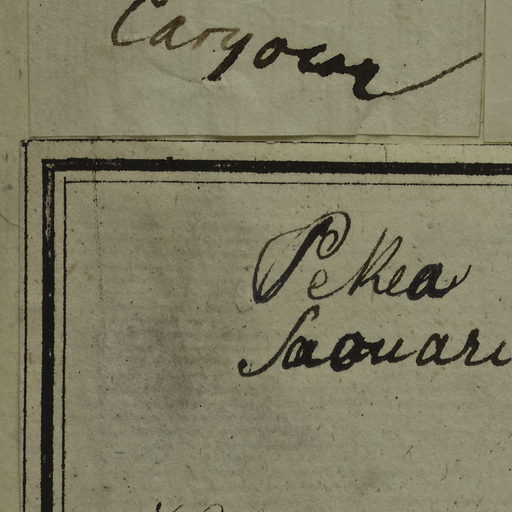 Caryocar
Pekea
Saouari